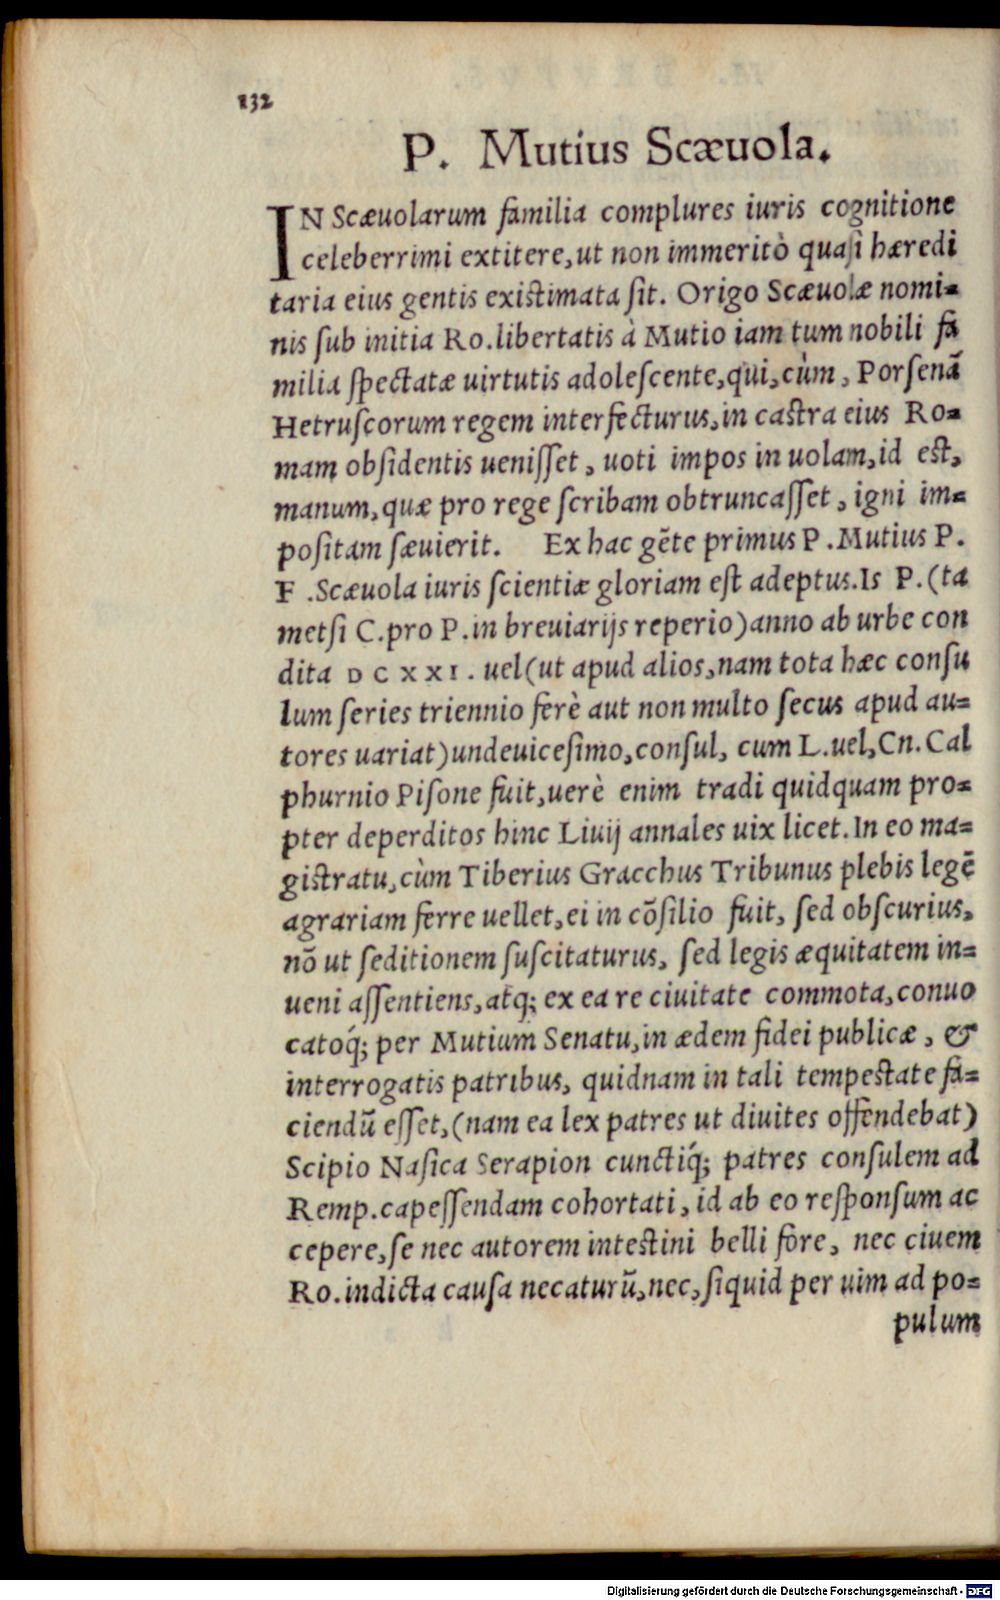 132
P. Mutius Scæuola.
IN Scæuolarum familia complures iuris cognitione
celeberrimi extitere, ut non immeritò quasi hæredi
taria eius gentis existimata sit. Origo Scæuolæ nomi=
nis sub initia Ro. libertatis à Mutio iam tum nobili fa
milia spectatæ uirtutis adolescente, qui, cùm, Porsenã
Hetruscorum regem interfecturus, in castra eius Ro=
mam obsidentis uenisset, uoti impos in uolam, id est,
manum, quæ pro rege scribam obtruncasset, igni im=
positam sæuierit. Ex hac gẽte primus P. Mutius P.
F. Scæuola iuris scientiæ gloriam est adeptus. Is P. (ta
metsi C. pro P. in breuiarijs reperio) anno ab urbe con
dita DCXXI. uel (ut apud alios, nam tota hæc consu
lum series triennio ferè aut non multo secus apud au=
tores uariat) undeuicesimo, consul, cum L. uel, Cn. Cal
phurnio Pisone fuit, uerè enim tradi quidquam pro=
pter deperditos hinc Liuij annales uix licet. In eo ma=
gistratu, cùm Tiberius Gracchus Tribunus plebis legẽ
agrariam ferre uellet, ei in cõsilio fuit, sed obscurius,
nõ ut seditionem suscitaturus, sed legis æquitatem in=
ueni assentiens, atq; ex ea re ciuitate commota, conuo
catoq́; per Mutium Senatu, in ædem fidei publicæ, &
interrogatis patribus, quidnam in tali tempestate fa=
ciendũ esset, (nam ea lex patres ut diuites offendebat)
Scipio Nasica Serapion cunctiq́; patres consulem ad
Remp. capessendam cohortati, id ab eo responsum ac
cepere, se nec autorem intestini belli fore, nec ciuem
Ro. indicta causa necaturũ, nec, siquid per uim ad po=
pulum
Digitalisierung gefördert durch die Deutsche Forschungsgemeinschaft - DFG